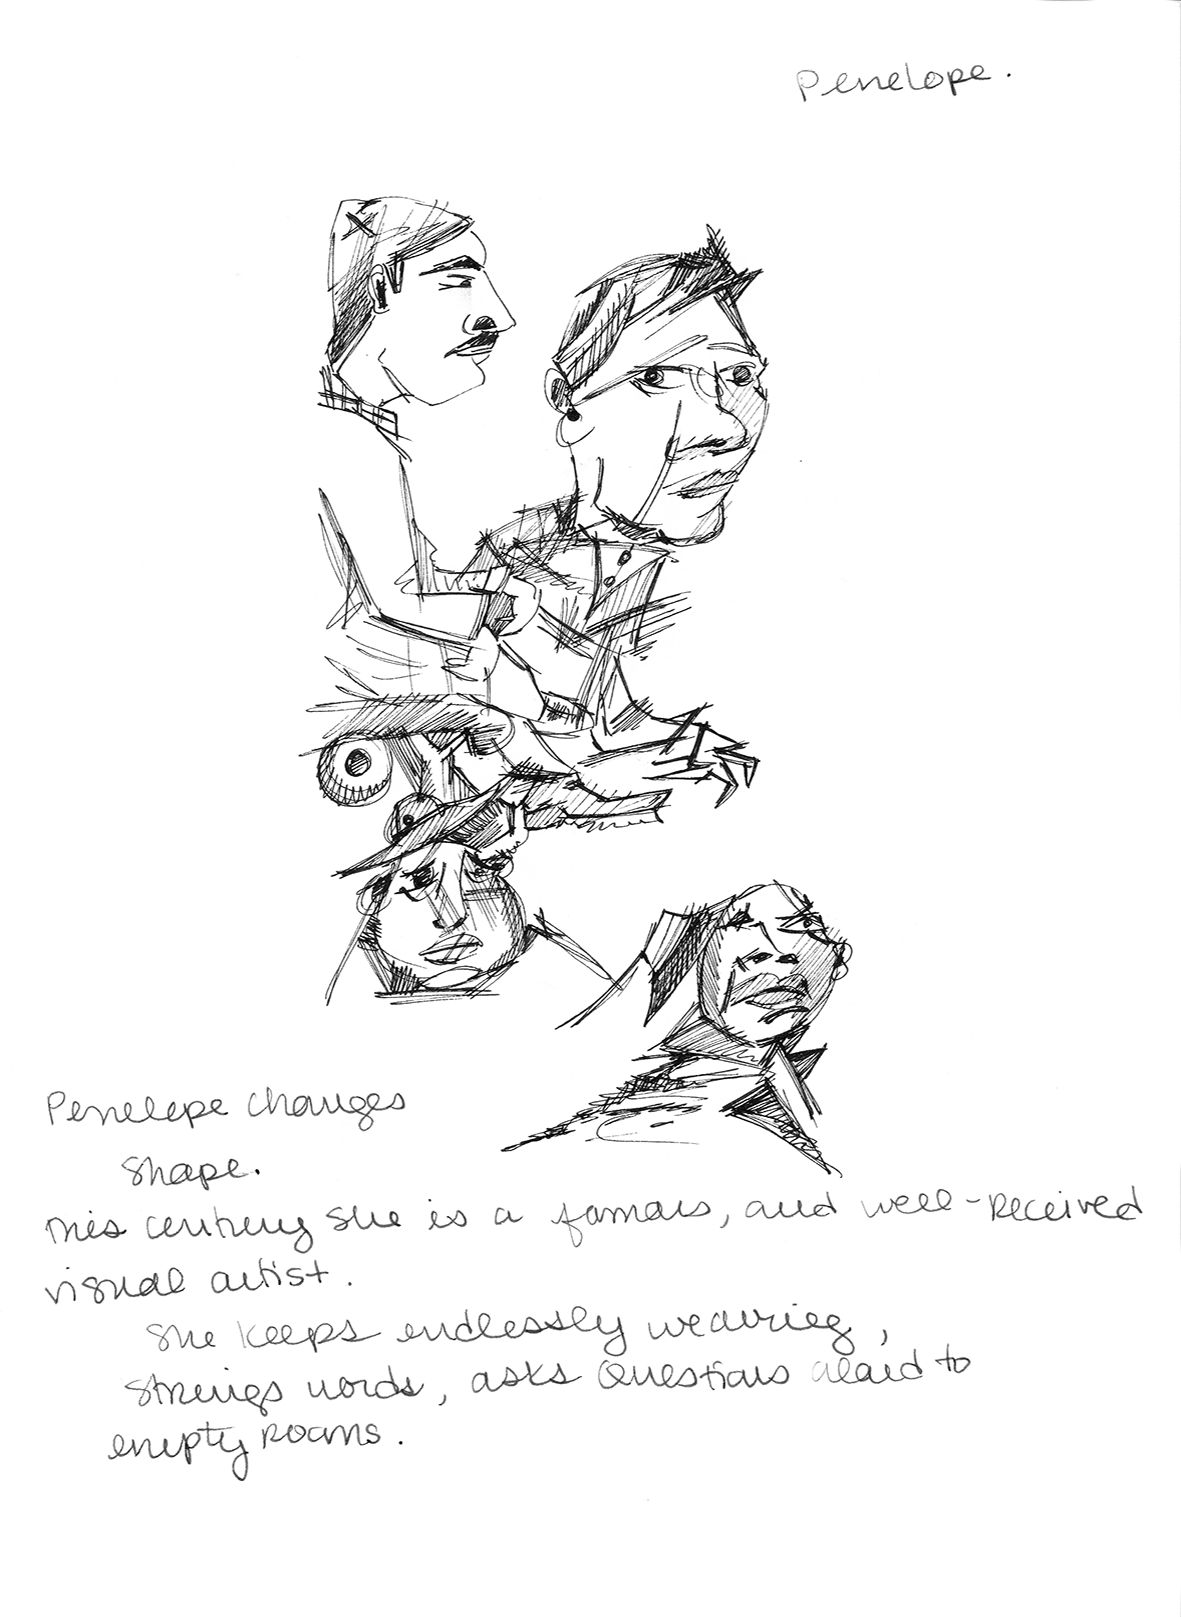 Penelope.
Penelope changes
shape.
This century she is a famous, and well-received
visual artist.
She keeps endlessly weaving,
strings words, asks questions aloud to
empty rooms.